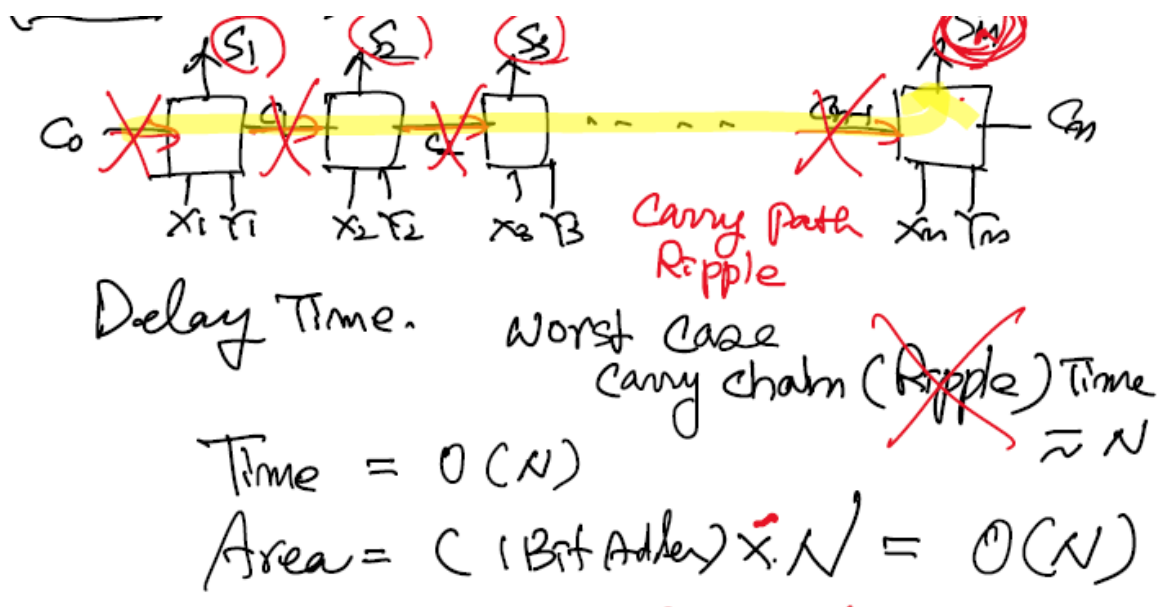 S1 S2 S3
C0 C1
X1 Y1 X2 Y2 X3 Y3 Xn Yn
Carry Path
Ripple
Delay Time.
Worst Case
Carry chain (Ripple) Time
≈ N
Time = O(N)
Area = (1Bit Adder) X N = O(N)